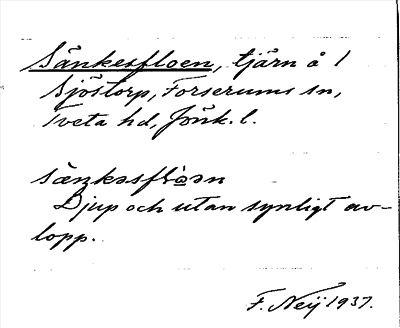 Sänkesfloen, tjärn å 1
Sjöstorp, Forserums sn,
Tveta hd, Jönk. l.
Djup och utan synligt av-
lopp.
F. Neij 1937.